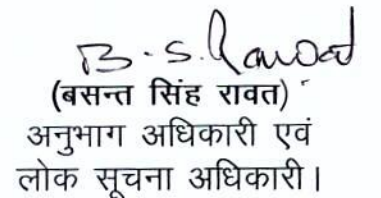 B. S. Rawat
(बसन्त सिंह रावत)
अनुभाग अधिकारी एवं
लोक सूचना अधिकारी।